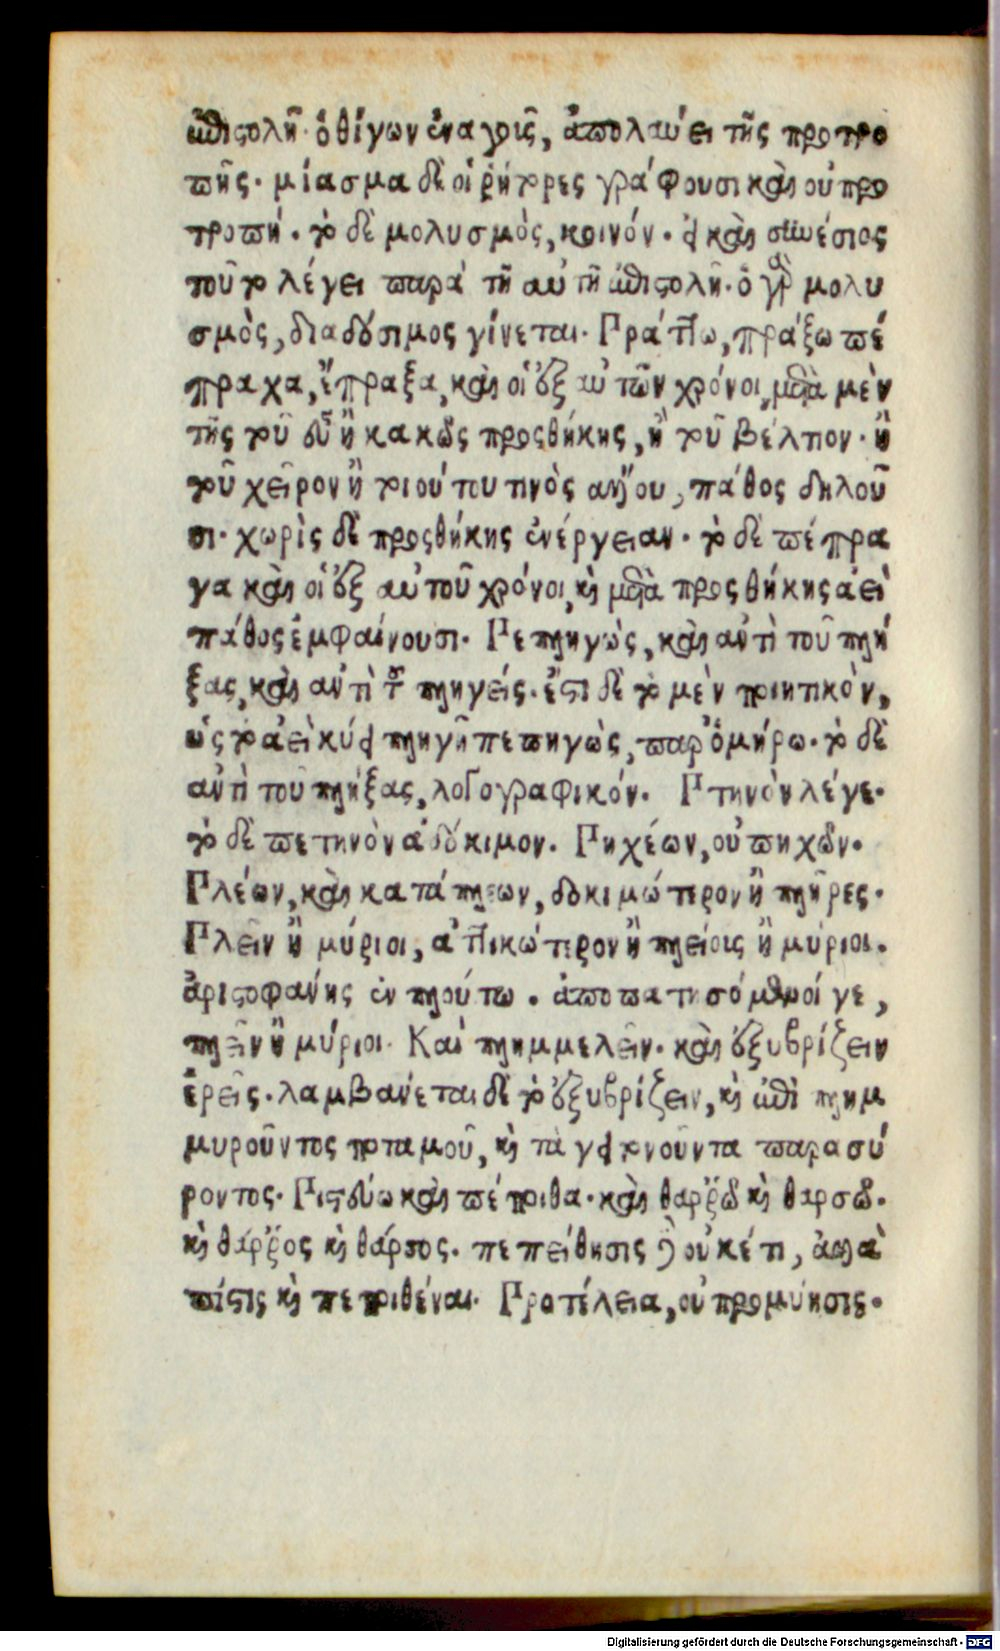 ἐπιστολῇ· ὁ θίγων ἐναγοῦς, ἀπολαύει τῆς προτρο
πῆς· μίασμα δὲ οἱ ῥήτορες γράφουσι καὶ οὐ προ
τροπή. τὸ δὲ μολυσμὸς, κοινόν. ὁ καὶ συνέσιος
τοῦτο λέγει παρὰ τῇ αὐτῇ ἐπιστολῇ· ὁ γὰρ μολυ
σμὸς, διαδόσιμος γίνεται. Πράττω, πράξω πέ
πραχα, ἔπραξα, καὶ οἱ ἐξ αὐτῶν χρόνοι, μετὰ μὲν
τῆς τοῦ εὖ ἢ κακῶς προσθήκης, ἢ τοῦ βέλτιον· ἢ
τοῦ χεῖρον ἢ τοιούτου τινὸς ἄλλου, πάθος δηλοῦ
σι· χωρὶς δὲ προσθήκης ἐνέργειαν. τὸ δὲ πέπρα
γα καὶ οἱ ἐξ αὐτοῦ χρόνοι, καὶ μετὰ προσθήκης ἀεὶ
πάθος ἐμφαίνουσι. Πεπληγώς, καὶ ἀντὶ τοῦ πλή
ξας, καὶ ἀντὶ τοῦ πληγείς. ἔστι δὲ τὸ μὲν ποιητικὸν,
παρ' ὁμήρω. τὸ δὲ
ἀντὶ τοῦ πλήξας, λογογραφικόν. Πτηνὸν λέγε·
τὸ δὲ πετηνὸν ἀδόκιμον. Πηχέων, οὐ πηχῶν.
Πλέων, καὶ κατάπλεων, δοκιμώτερον ἢ πλῆρες.
Πλεῖν ἢ μύριοι, ἀττικώτερον ἢ πλείοις ἢ μύριοι.
ἀριστοφάνης ἐν πλούτω. ἀποπατησόμενοί γε,
πλεῖν ἢ μύριοι. Καὶ πλημμελεῖν. καὶ ἐξυβρίζειν
ἐρεῖς. λαμβάνεται δὲ τὸ ἐξυβρίζειν, καὶ ἐπὶ πλημ
μυροῦντος ποταμοῦ, καὶ τὰ γειτονοῦντα παρασύ
ροντος. Πιστεύω καὶ πέποιθα. καὶ θαῤῥῶ καὶ θαρσῶ.
καὶ θάῤῥος καὶ θάρσος. πεπείθησις δὲ οὐκέτι, ἀλλὰ
πίστις καὶ πεποιθέναι. Προτέλεια, οὐ προμύησις.
Digitalisierung gefördert durch die Deutsche Forschungsgemeinschaft - DFG